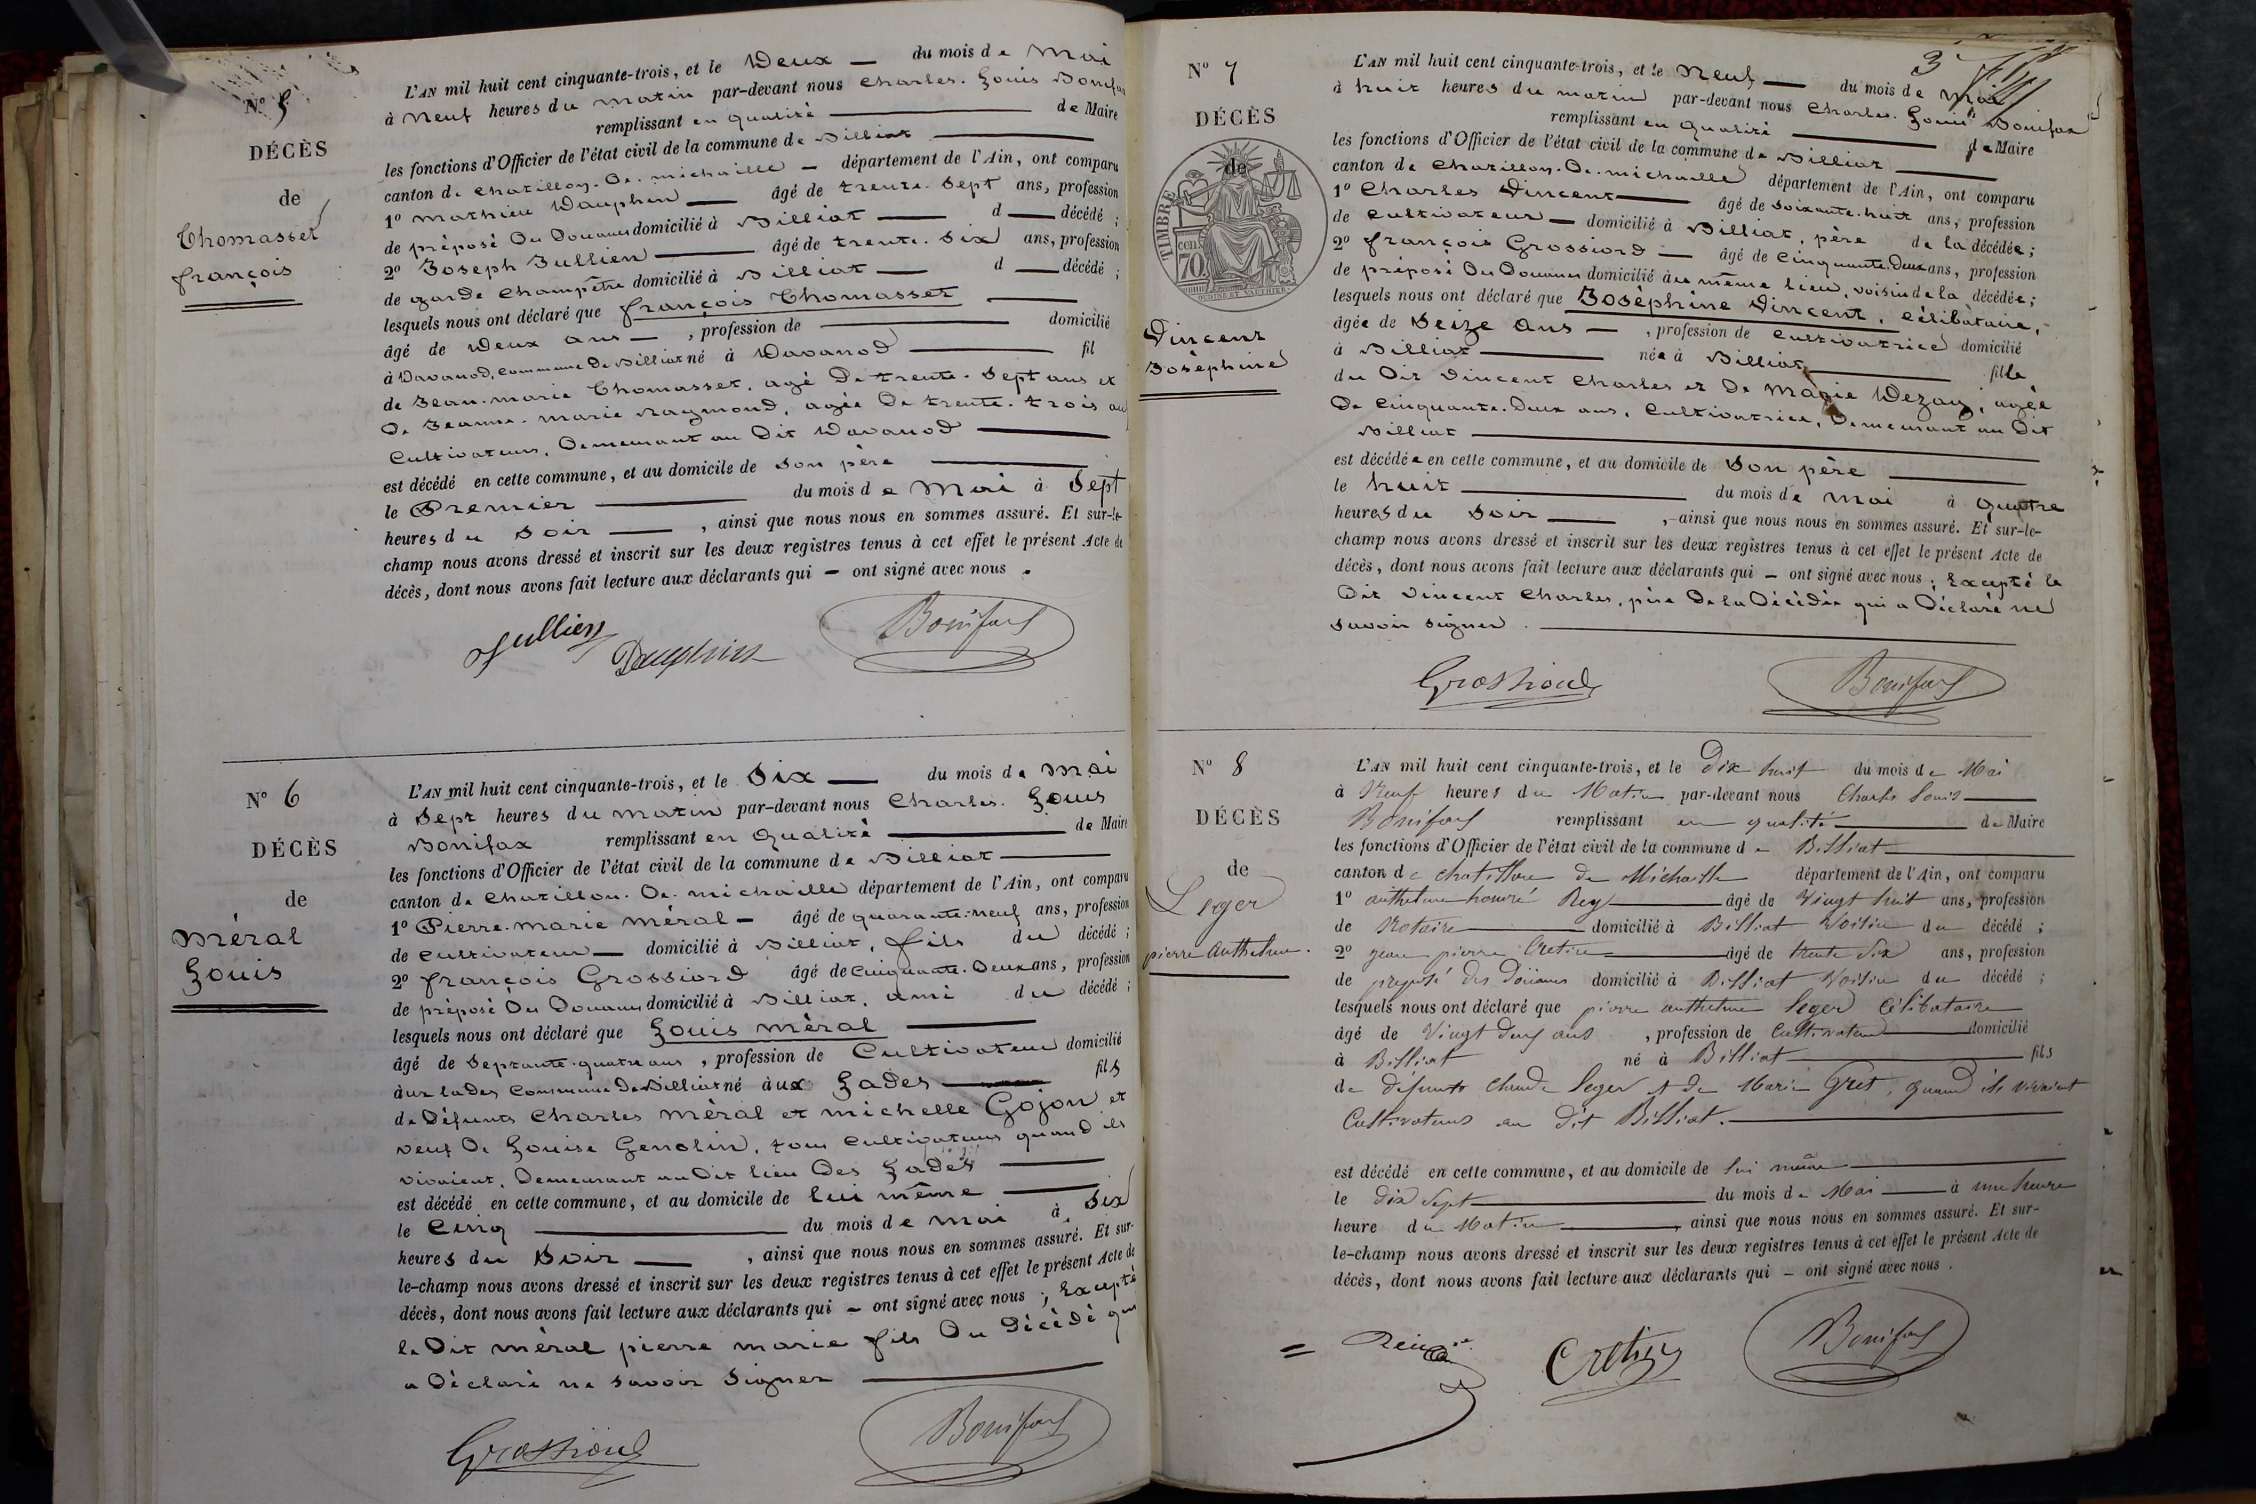 N° 5
DÉCÈS
de
Thomasset
françois
L'AN mil huit cent cinquante-trois, et le Deux — du mois de Mai
à Neuf heures du matin par-devant nous Charles. Louis Bonifax
remplissant en qualité — de Maire
les fonctions d'Officier de l'état civil de la commune de Billiat —
canton de Chatillon. De. michaille — département de l'Ain, ont comparu
1° mathieu Dauphin — âgé de trente. Sept ans, profession
de préposé Des Douanes domicilié à Billiat — d — décédé ;
2° Joseph Jullien — âgé de trente. Six ans, profession
de garde Champêtre domicilié à Billiat — d — décédé ;
lesquels nous ont déclaré que françois Thomasset —
âgé de Deux ans —, profession de — domicilié
à Davanod, commune de Billiat né à Davanod — fil
de Jean. marie Thomasset, agé De trente. Sept ans et
De Jeanne. marie Raymond, agée De trente. trois ans
Cultivateurs, Demeurant au Dit Davanod —
est décédé en cette commune, et au domicile de Son père —
le Premier — du mois de Mai à Sept
heures du Soir —, ainsi que nous nous en sommes assuré. Et sur-le-
champ nous avons dressé et inscrit sur les deux registres tenus à cet effet le présent Acte de
décès, dont nous avons fait lecture aux déclarants qui — ont signé avec nous .
Jullien
Dauphin
Bonifax
N° 6
DÉCÈS
de
Méral
Louis
L'AN mil huit cent cinquante-trois, et le Six — du mois de Mai
à Sept heures du matin par-devant nous Charles. Louis
Bonifax remplissant en qualité — de Maire
les fonctions d'Officier de l'état civil de la commune de Billiat —
canton de Chatillon. De. michaille département de l'Ain, ont comparu
1° Pierre. marie Méral — âgé de quarante-neuf ans, profession
de Cultivateur — domicilié à Billiat, fils du décédé ;
2° françois Grossiord âgé de Cinquante. Deux ans, profession
de préposé Des Douanes domicilié à Billiat, ami du décédé ;
lesquels nous ont déclaré que Louis Méral —
âgé de Septante-quatre ans, profession de Cultivateur domicilié
aux Lades Commune De Billiat né aux Lades — fils
de Défunts Charles Méral et michelle Gojon et
veuf De Louise Genolin, tous Cultivateurs quand ils
vivaient, Demeurant au Dit lieu Des Lades —
est décédé en cette commune, et au domicile de lui même —
le Cinq — du mois de mai à Six
heures du Soir —, ainsi que nous nous en sommes assuré. Et sur-
le-champ nous avons dressé et inscrit sur les deux registres tenus à cet effet le présent Acte de
décès, dont nous avons fait lecture aux déclarants qui — ont signé avec nous ; Excepté
le Dit Méral pierre marie fils Du Décédé qui
a Déclaré ne savoir Signer —
Grossiord
Bonifax
3
N° 7
DÉCÈS
de
TIMBRE
cen. 70
Vincent
Joséphine
L'AN mil huit cent cinquante-trois, et le Neuf — du mois de Mai
à huit heures du matin par-devant nous Charles. Louis Bonifax
remplissant en qualité — de Maire
les fonctions d'Officier de l'état civil de la commune de Billiat —
canton de Chatillon. De. michaille département de l'Ain, ont comparu
1° Charles Vincent — âgé de soixante. huit ans, profession
de Cultivateur — domicilié à Billiat, père de la décédée ;
2° françois Grossiord — âgé de Cinquante. Deux ans, profession
de préposé Des Douanes domicilié au même lieu, voisin de la décédée ;
lesquels nous ont déclaré que Joséphine Vincent, Célibataire,
âgée de Seize ans —, profession de Cultivatrice domicilié
à Billiat — née à Billiat — fille
du Dit Vincent Charles et De Marie Dezay, agée
De Cinquante. Deux ans, Cultivatrice, Demeurant au Dit
Billiat —
est décédée en cette commune, et au domicile de Son père —
le huit — du mois de Mai à quatre
heures du Soir —, ainsi que nous nous en sommes assuré. Et sur-le-
champ nous avons dressé et inscrit sur les deux registres tenus à cet effet le présent Acte de
décès, dont nous avons fait lecture aux déclarants qui — ont signé avec nous ; Excepté le
Dit Vincent Charles, père De la Décédée qui a Déclaré ne
savoir signer. —
Grossiord
Bonifax
N° 8
DÉCÈS
de
Leger
pierre Anthelme.
L'AN mil huit cent cinquante-trois, et le Dix huit du mois de Mai
à Neuf heures du Matin par-devant nous Charles Louis —
Bonifax remplissant en qualité — de Maire
les fonctions d'Officier de l'état civil de la commune de Billiat —
canton de Chatillon de Michaille département de l'Ain, ont comparu
1° anthelme honoré Rey — âgé de Vingt huit ans, profession
de Notaire — domicilié à Billiat Voisin du décédé ;
2° jean pierre Cretin — âgé de trente Six ans, profession
de preposé des Douanes domicilié à Billiat Voisin du décédé ;
lesquels nous ont déclaré que pierre anthelme Leger Célibataire
âgé de Vingt deux ans, profession de Cultivateur — domicilié
à Billiat né à Billiat — fils
de défunts Claude Leger et de Marie Gret, quand ils vivaient
Cultivateurs au dit Billiat. —
est décédé en cette commune, et au domicile de lui même —
le Dix Sept — du mois de Mai — à une heure
heure du Matin —, ainsi que nous nous en sommes assuré. Et sur-
le-champ nous avons dressé et inscrit sur les deux registres tenus à cet effet le présent Acte de
décès, dont nous avons fait lecture aux déclarants qui — ont signé avec nous .
Cretin
Bonifax